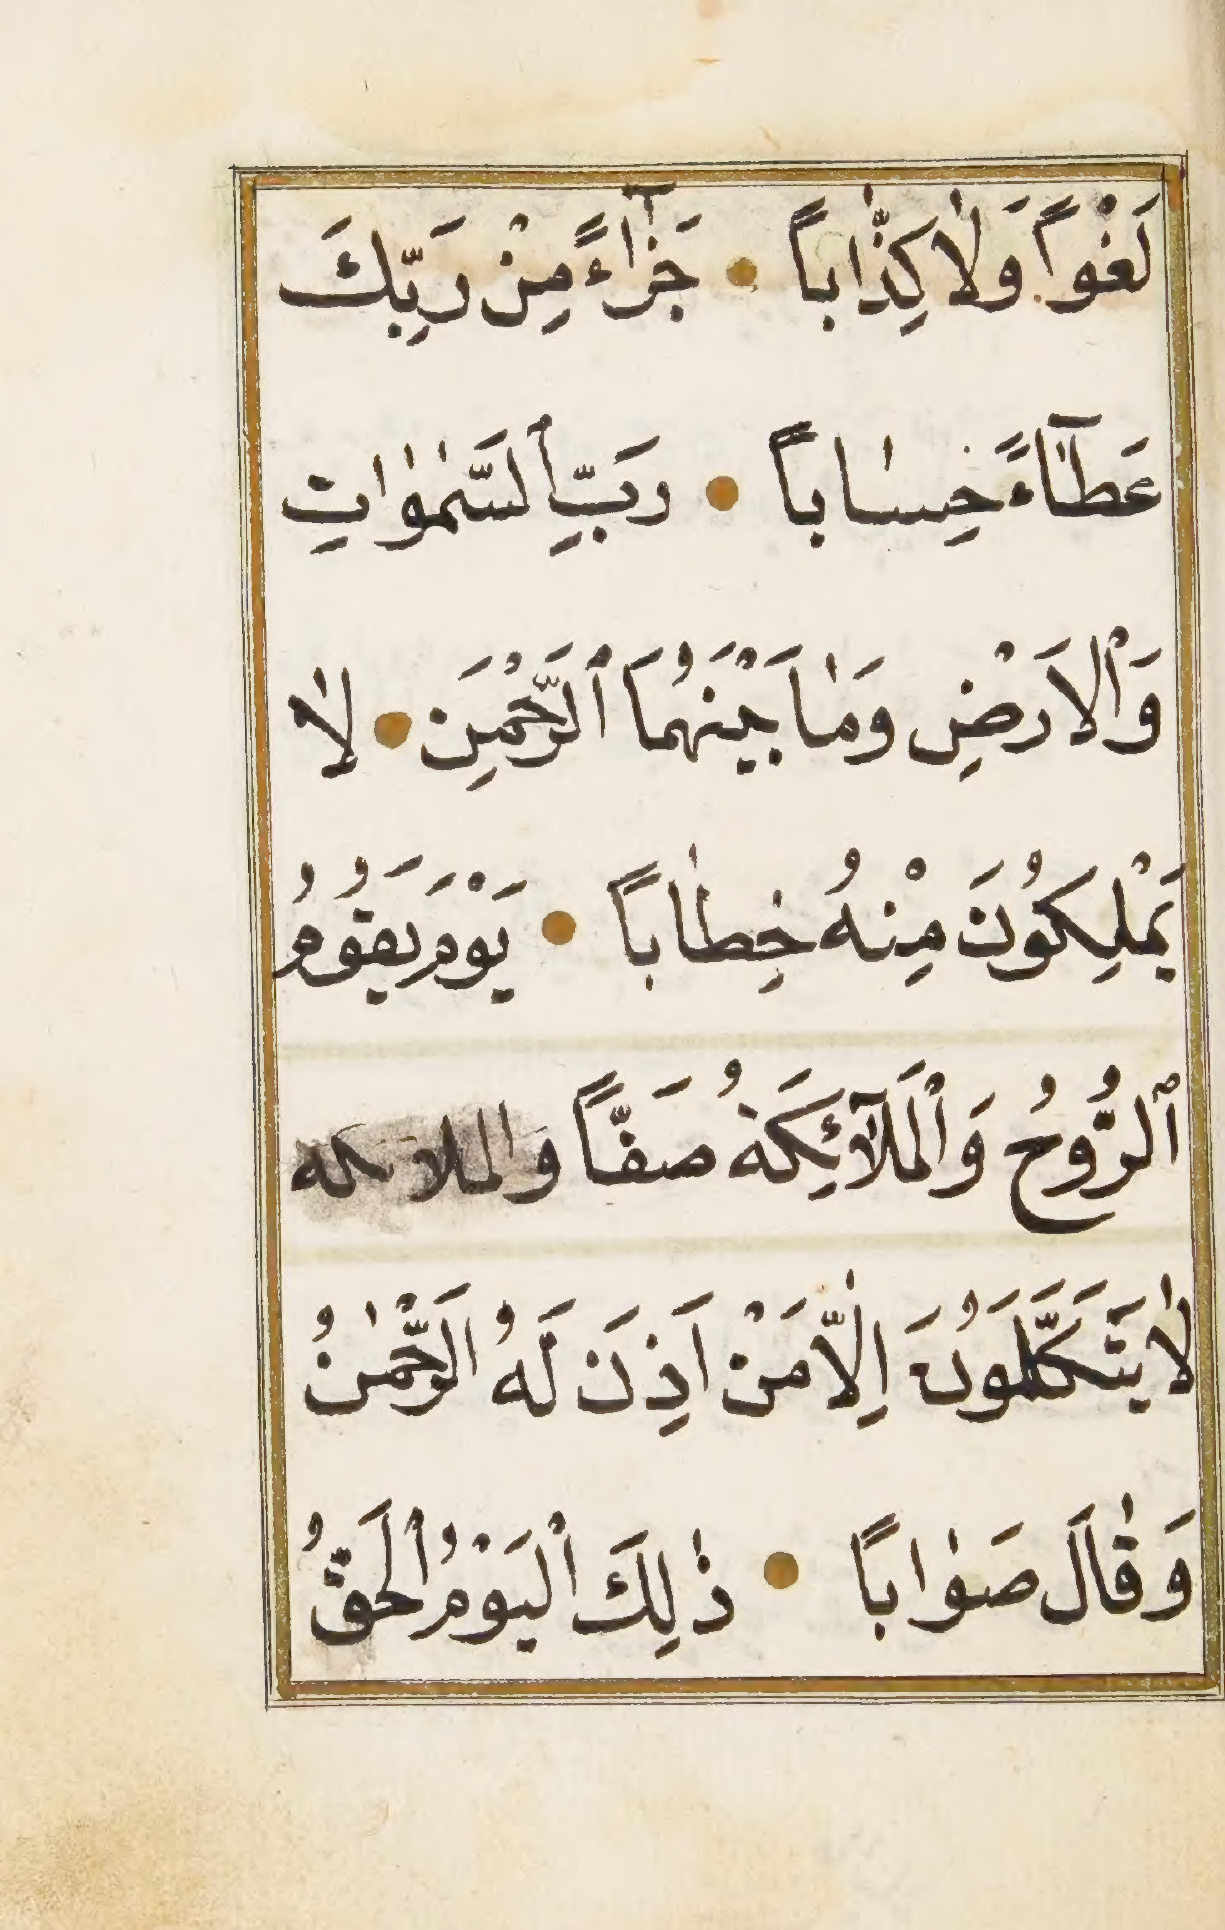 لَغْواً وَلٰا كِذّٰاباً ● جَزٰٓاءً مِنْ رَبِّكَ
عَطٰٓاءً حِسٰاباً ● رَبِّ ٱلسَّمٰوٰاتِ
وَٱلْاَرْضِ وَمٰا بَيْنَهُمَا ٱلرَّحْمٰنِ ● لٰا
يَمْلِكُونَ مِنْهُ خِطٰاباً ● يَوْمَ يَقُومُ
ٱلرُّوحُ وَٱلْمَلٓائِكَةُ صَفّاً والملائكه
لٰا يَتَكَلَّمَوُنَ اِلّٰا مَنْ اَذِنَ لَهُ الرَّحْمٰنُ
وَقٰالَ صَوٰاباً ● ذٰلِكَ ٱلْيَوْمُ ٱلْحَقُّ